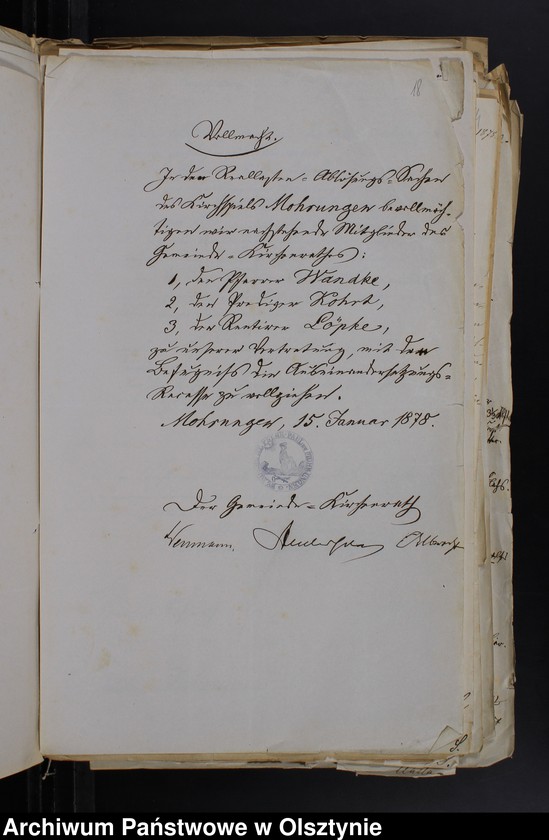 18
Vollmacht.
In den Reallasten-Ablösungs-Sachen
des Kirchspiels Mohrungen bevollmäch-
tigen wir nachstehende Mitglieder des
Gemeinde-Kirchenrathes:
1, den Pfarrer Wandke,
2, den Prediger Kohrt,
3, den Rentier Löpke,
zu unserer Vertretung, mit der
Befugniß die Auseinandersetzungs-
Recesse zu vollziehen.
Mohrungen, 15. Januar 1878.
Der Gemeinde-Kirchenrath
Neumann. Albrecht
Archiwum Państwowe w Olsztynie